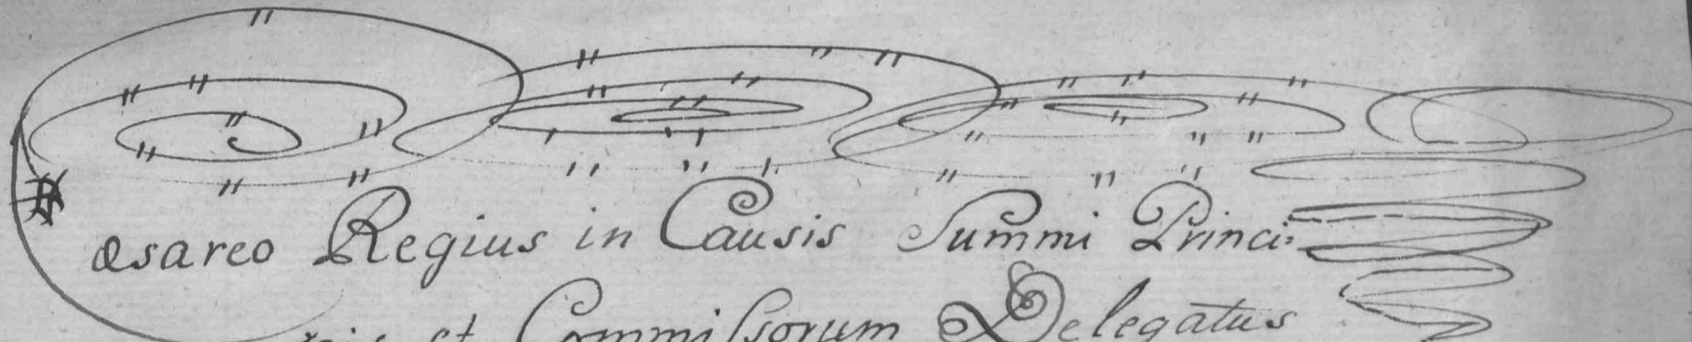 Cæsareo Regius in Causis Summi Princi:
pis et Commissorum Delegatus